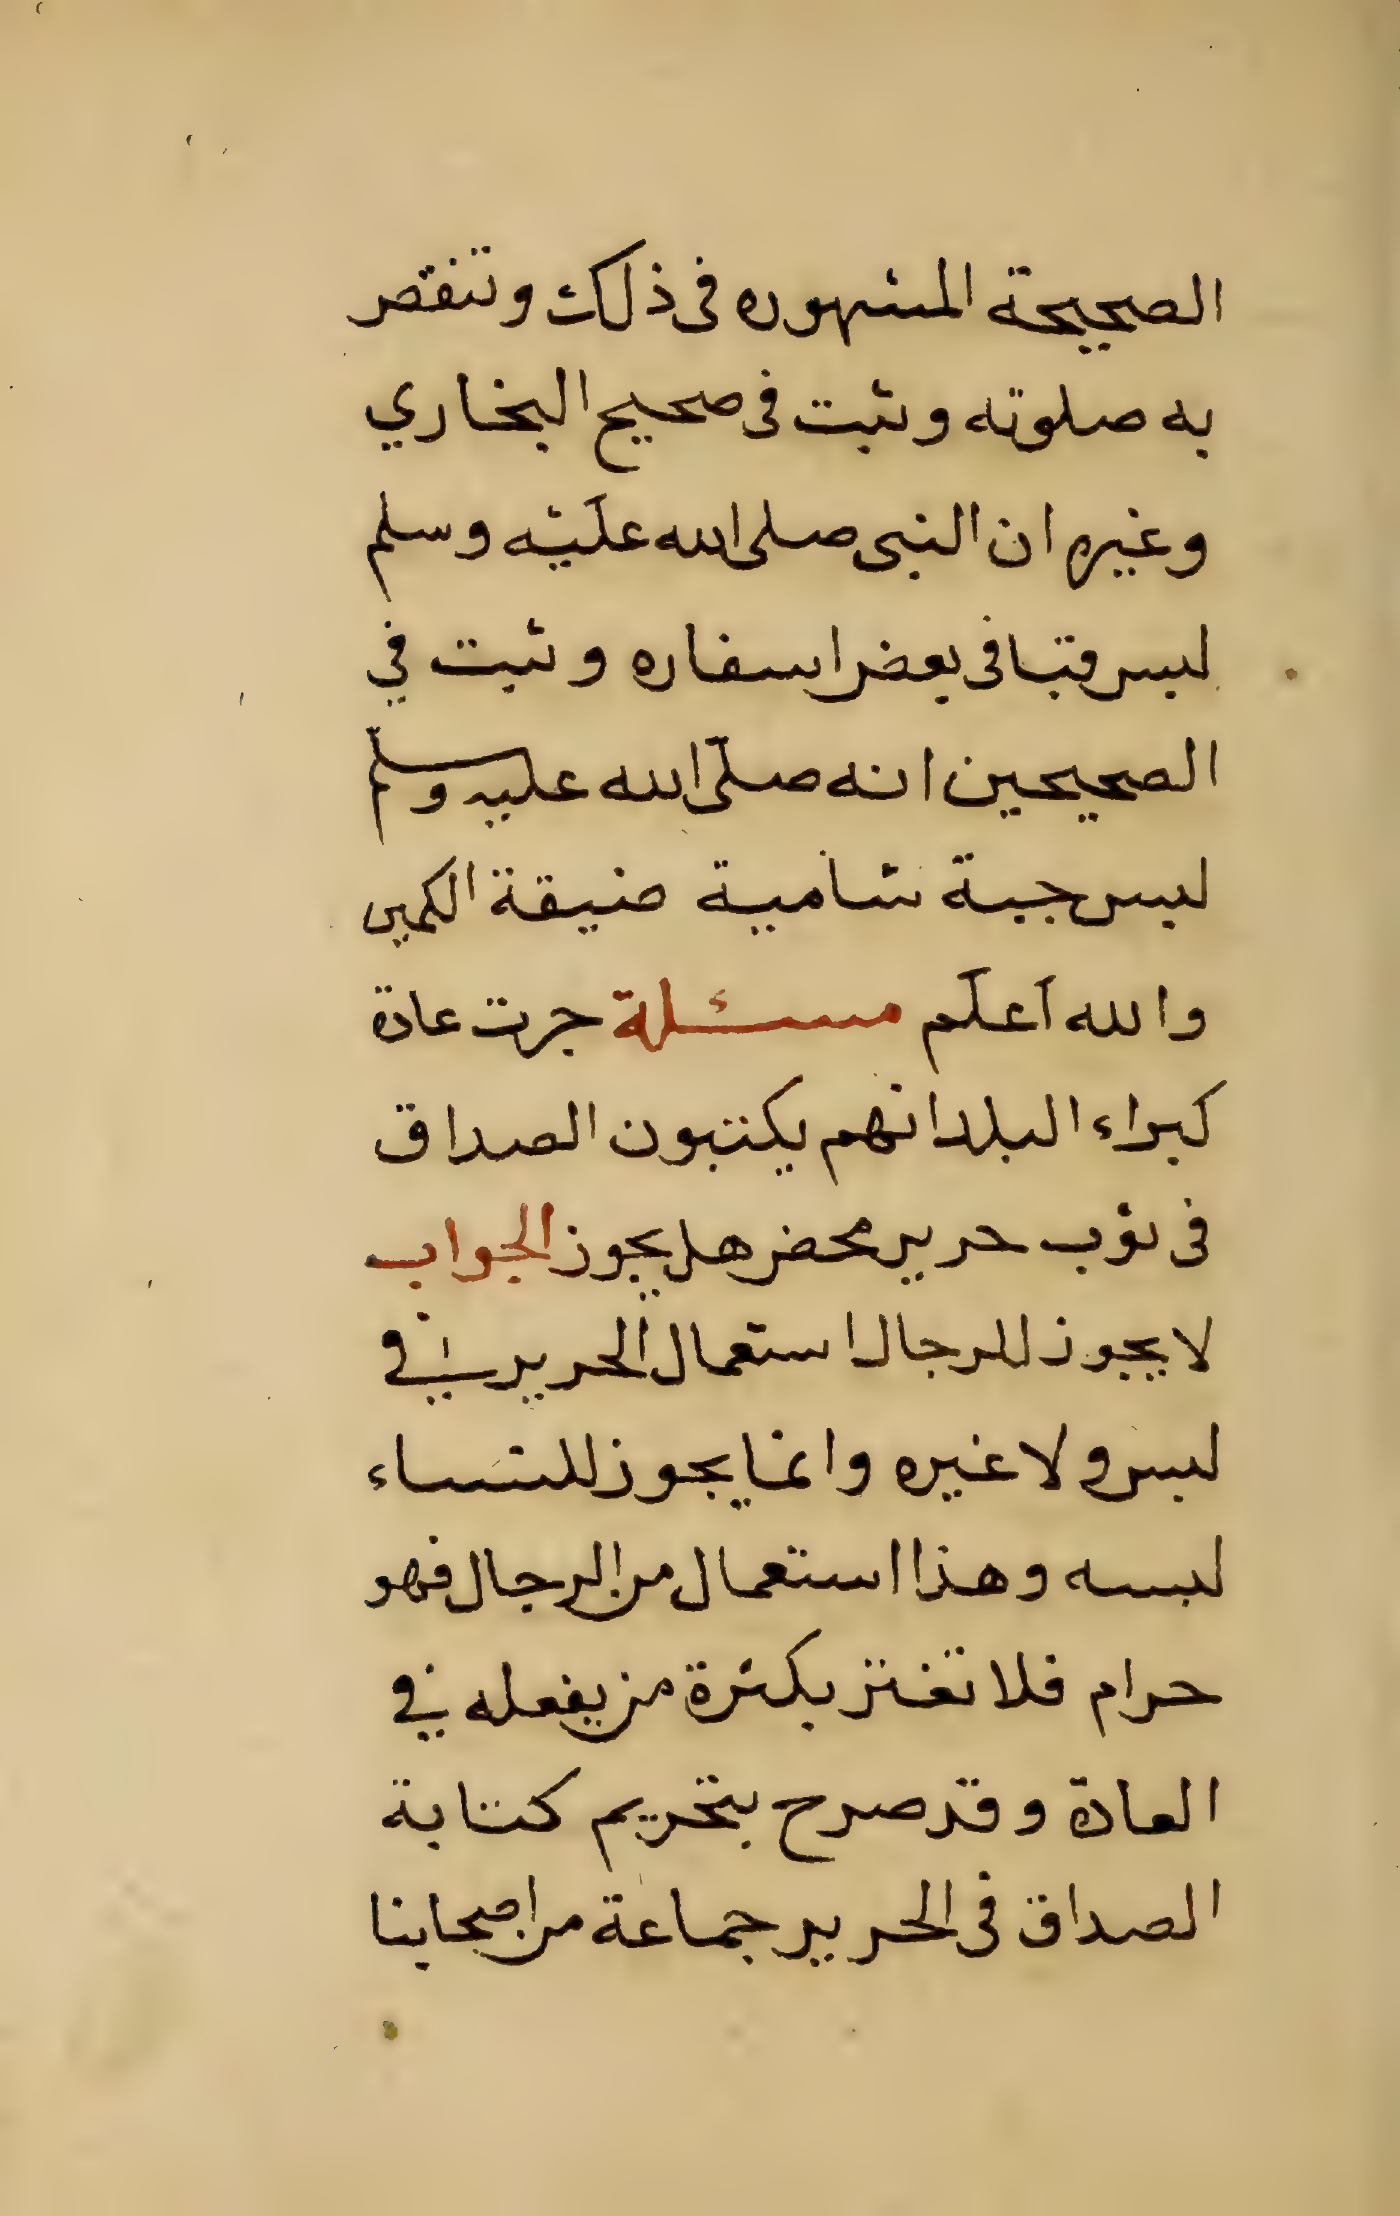 الصحيحة المشهوره فى ذلك وتنقص
به صلوته وثبت فى صحيح البخاري
وغيره ان النبى صلى الله عليه وسلم
لبس قبا فى بعض اسفاره وثبت في
الصحيحين انه صلى الله عليه وسلم
لبس جبة شامية ضيقة الكمين
والله اعلم مسئلة جرت عادة
كبراء البلد انهم يكتبون الصداق
فى ثوب حرير محض هل يجوز الجواب
لا يجوز للرجال استعمال الحرير في
لبس ولا غيره وانما يجوز للنساء
لبسه وهذا استعمال من الرجال فهو
حرام فلا تغتر بكثرة من يفعله في
العادة وقد صرح بتحريم كتابة
الصداق فى الحرير جماعة من اصحابنا